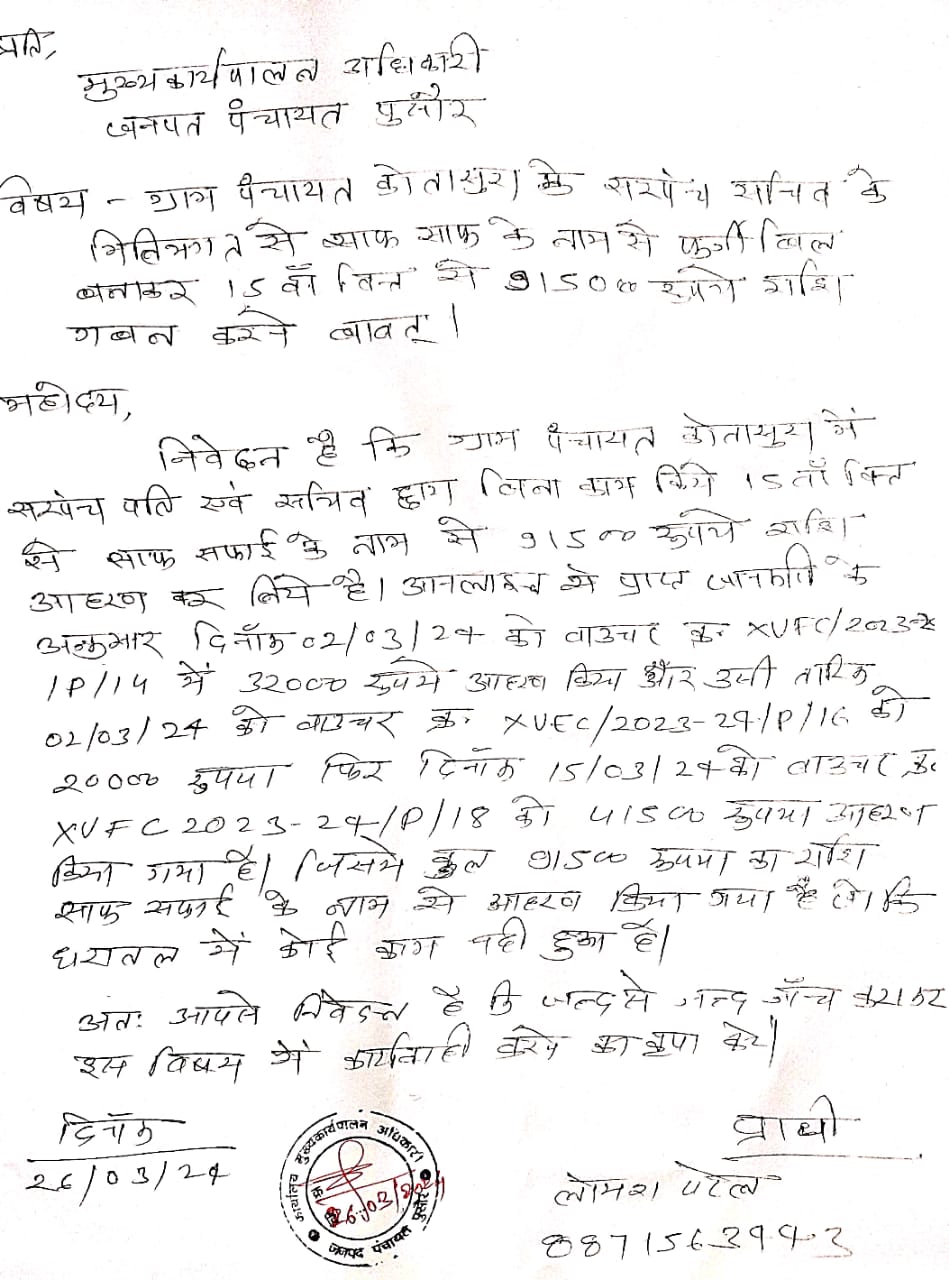 प्रति,
मुख्यकार्यपालन अधिकारी
जनपत पंचायत पुसौर
विषय - ग्राम पंचायत कोतासुरा के सरपंच सचिव के
मिलिभगत से साफ साफ के नाम से फर्जी बिल
बनाकर 15 वाँ वित्त से 91500 रुपये राशि
गबन करने बावत् ।
महोदय,
निवेदन है कि ग्राम पंचायत कोतासुरा में
सरपंच पति एवं सचिव द्वारा बिना काम किये 15 वाँ वित्त
से साफ सफाई के नाम से 91500 रुपये राशि
आहरण कर लिये है। आनलाइन से प्राप्त जानकारी के
अनुसार दिनाँक 02/03/24 को वाउचर क्र. XVFC/2023-2
/P/14 में 32000 रुपये आहरण किया और उसी तारिक
02/03/24 को वाउचर क्र. XVFC/2023-24/P/16 को
20000 रुपया फिर दिनाँक 15/03/24 को वाउचर क्र.
XVFC 2023-24/P/18 को 41500 रुपया आहरण
किया गया है। जिसमे कुल 91500 रुपया का राशि
साफ सफाई के नाम से आहरण किया गया है जो कि
धरातल में कोई काम नही हुआ है।
अतः आपसे निवेदन है कि जल्द से जल्द जाँच कराकर
इस विषय में कार्यवाही करने का कृपा करे।
दिनाँक
26/03/24
प्रार्थी
लोमश पटेल
8871563943
कार्यालय मुख्यकार्यपालन अधिकारी
26/03/2024
जनपद पंचायत पुसौर